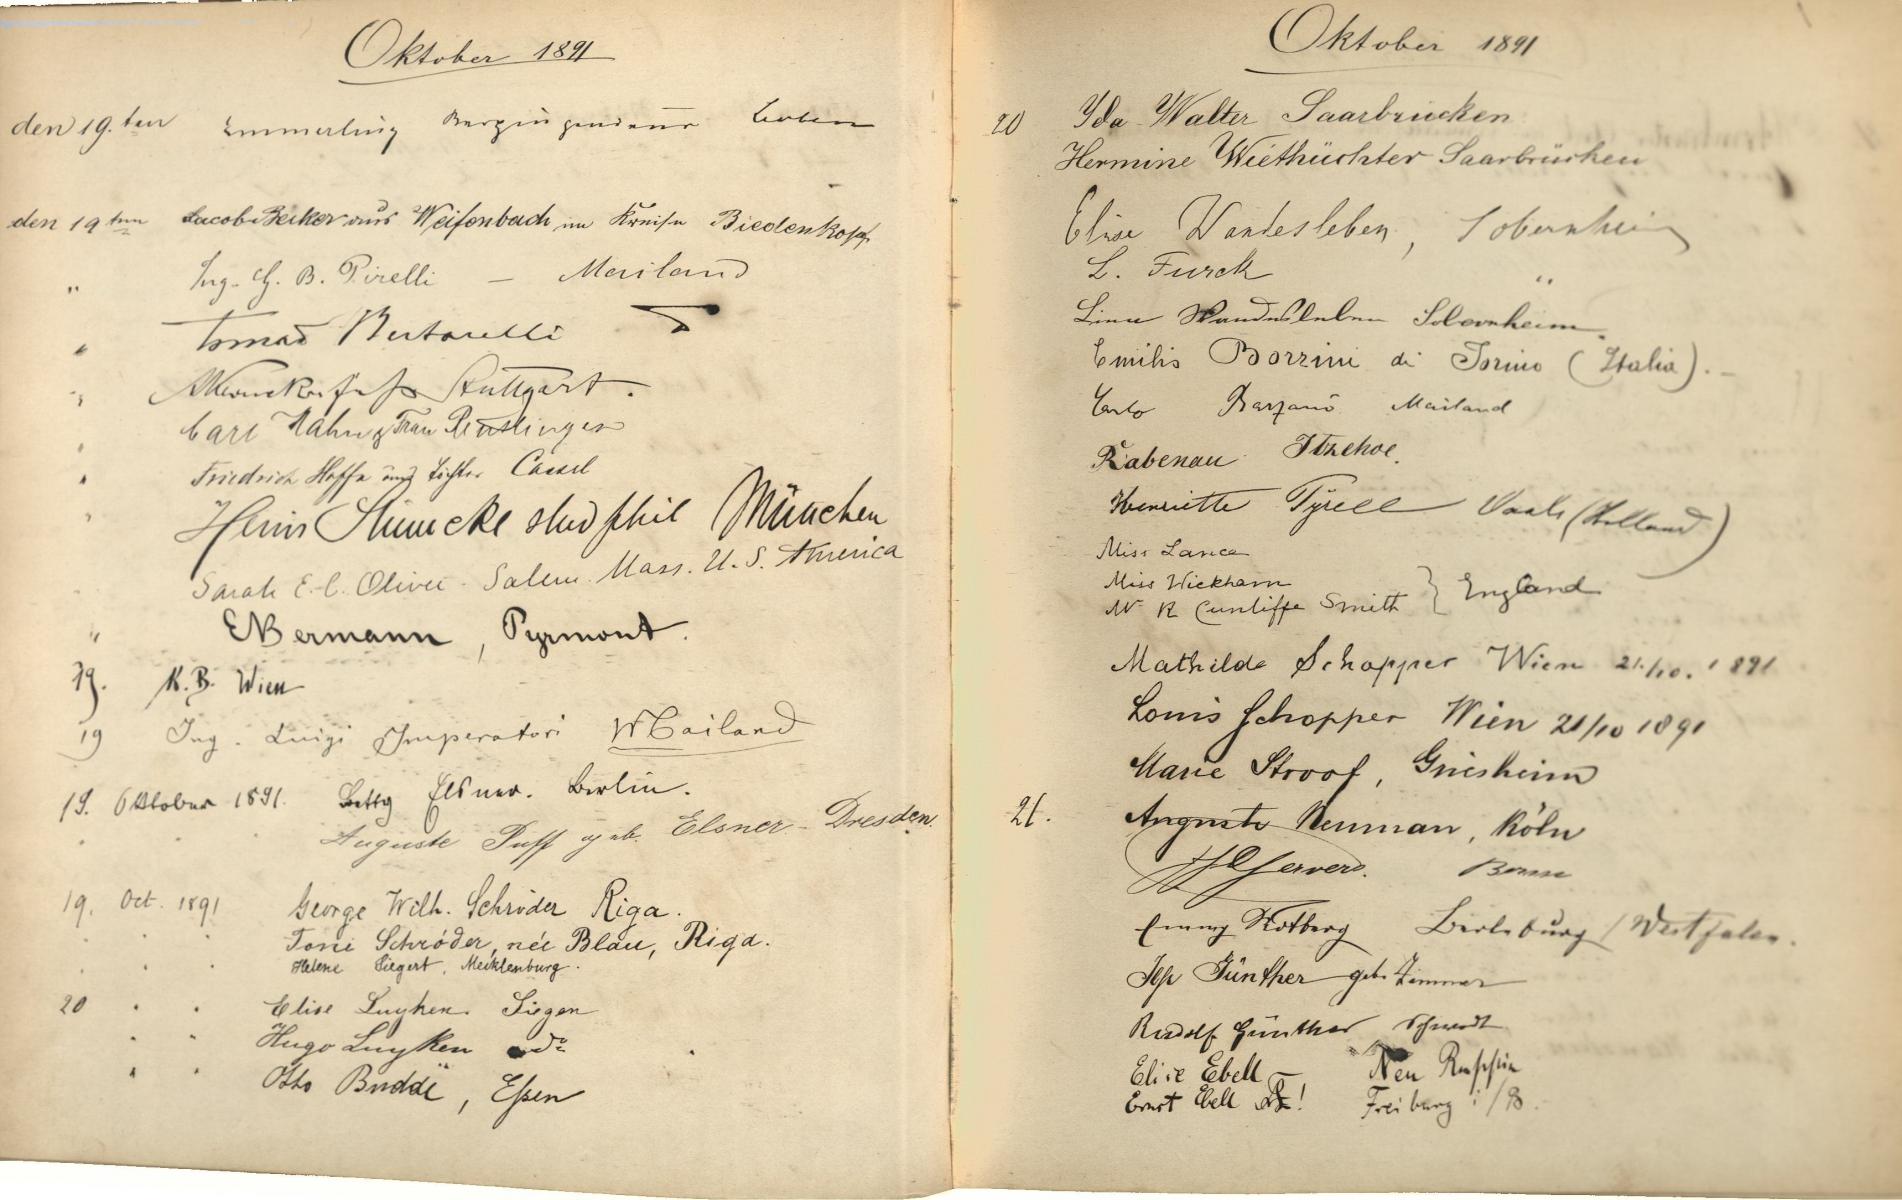 Oktober 1891
den 19.ten Emmerling
den 19ten Jacob Becker aus Weifenbach im Kreise Biedenkopf
" Ing. G. B. Pirelli — Mailand
" Tomaso Bertarelli
" Stuttgart.
" Carl Hahn & Frau Reutlingen
" Friedrich Hoffa und Tochter Cassel
" Heinr Stümcke stud phil München
Sarah E. C. Oliver. Salem. Mass. U. S. America
" E Bermann, Pyrmont.
19. K. B. Wien
19 Ing. Luigi Imperatori Mailand
19. Oktober 1891. Betty Elsner. Berlin.
" " Auguste Puff geb. Elsner - Dresden.
19. Oct. 1891 George Wilh. Schröder Riga.
" " " Toni Schröder, née Blau, Riga.
" " " Helene Siegert, Mecklenburg.
20 " " Elise Luyken. Siegen
" " Hugo Luyken do
" " Otto Budde, Eßen
Oktober 1891
20 Ida Walter Saarbrücken
Hermine Wiethüchter Saarbrücken
Elise Wandesleben, Sobernheim
L. Furck "
Lina Wandesleben Sobernheim.
Emilio Borzini di Torino (Italia). -
Carlo Barzanò Mailand
Rabenau Itzehoe.
Henriette Tyrell Vaals (Holland)
Miss Lance
Miss Wickham
Mr R Cunliffe Smith } England
Mathilde Schopper Wien 21./10. 1891
Louis Schopper Wien 21/10 1891
Marie Stroof, Griesheim
21. Auguste Neuman, Köln
Emmy Rotberg Berleburg / Westfalen.
Günther geb. Zimmer
Rudolf Günther
Elise Ebell Neu Ruppin
Ernst Ebell ! Freiburg i/B.